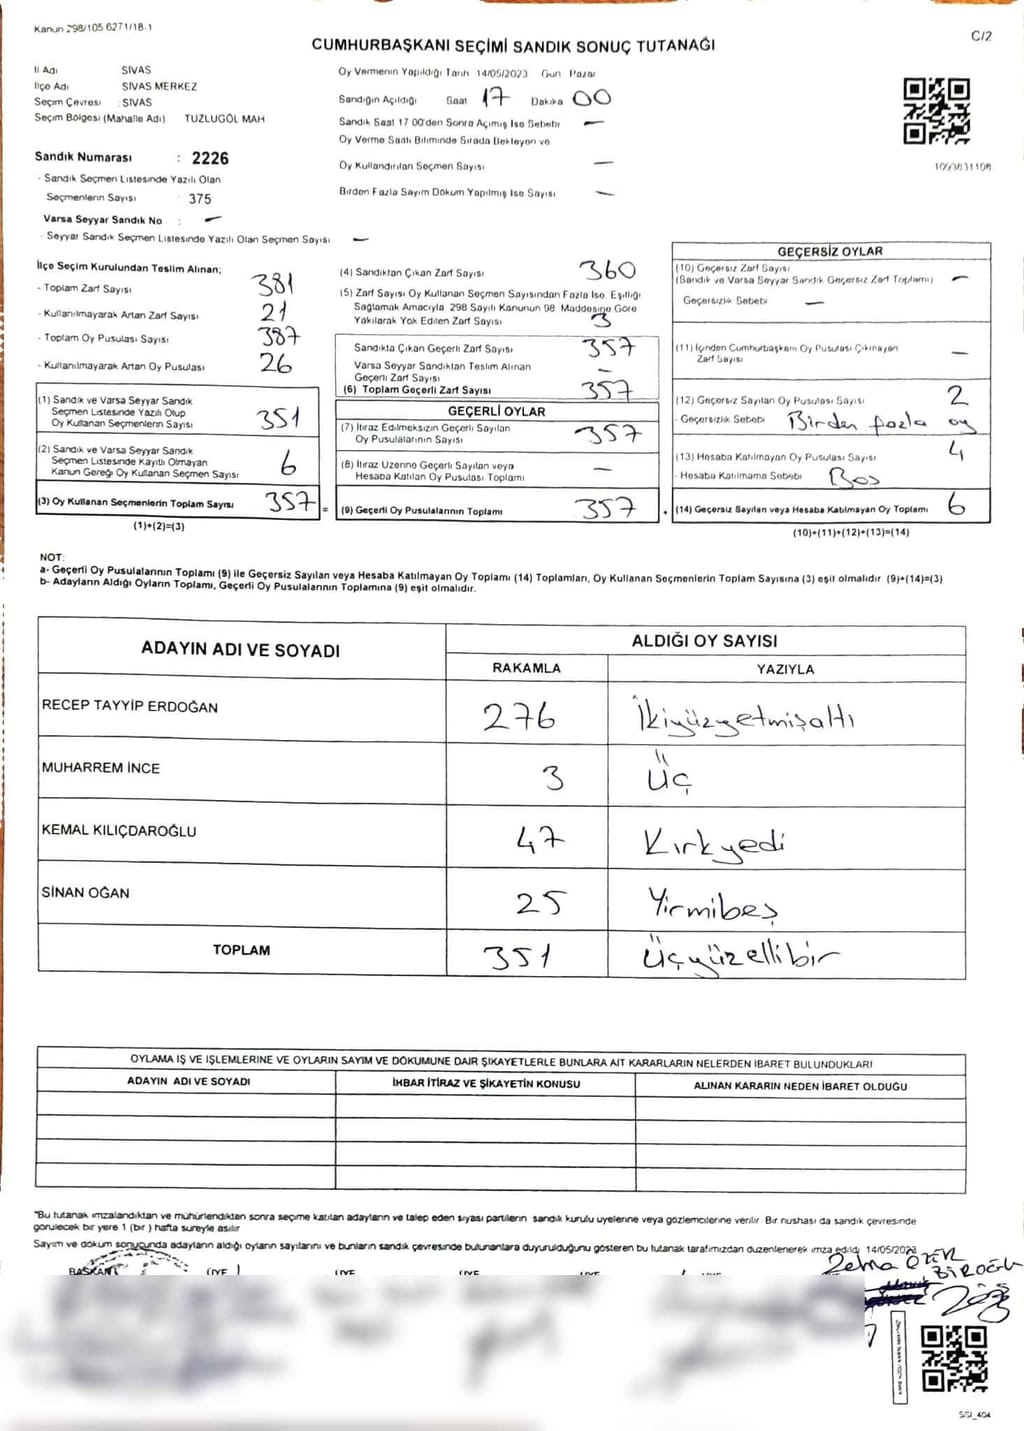 Kanun 298/105 6271/18-1
C/2
CUMHURBAŞKANI SEÇİMİ SANDIK SONUÇ TUTANAĞI
İl Adı SİVAS
İlçe Adı SİVAS MERKEZ
Seçim Çevresi : SİVAS
Seçim Bölgesi (Mahalle Adı) TUZLUGÖL MAH
Sandık Numarası : 2226
- Sandık Seçmen Listesinde Yazılı Olan
Seçmenlerin Sayısı 375
Varsa Seyyar Sandık No : —
- Seyyar Sandık Seçmen Listesinde Yazılı Olan Seçmen Sayısı —
Oy Vermenin Yapıldığı Tarih 14/05/2023 Gün Pazar
Sandığın Açıldığı Saat 17 Dakika 00
Sandık Saat 17 00'den Sonra Açımış İse Sebebi —
Oy Verme Saati Bitiminde Sırada Bekleyen ve
Oy Kullandırılan Seçmen Sayısı —
Birden Fazla Sayım Döküm Yapılmış İse Sayısı —
1093831108
İlçe Seçim Kurulundan Teslim Alınan;
- Toplam Zarf Sayısı 381
- Kullanılmayarak Artan Zarf Sayısı 21
- Toplam Oy Pusulası Sayısı 387
- Kullanılmayarak Artan Oy Pusulası 26
(1) Sandık ve Varsa Seyyar Sandık
Seçmen Listesinde Yazılı Olup
Oy Kullanan Seçmenlerin Sayısı 351
(2) Sandık ve Varsa Seyyar Sandık
Seçmen Listesinde Kayıtlı Olmayan
Kanun Gereği Oy Kullanan Seçmen Sayısı 6
(3) Oy Kullanan Seçmenlerin Toplam Sayısı 357 =
(1)+(2)=(3)
(4) Sandıktan Çıkan Zarf Sayısı 360
(5) Zarf Sayısı Oy Kullanan Seçmen Sayısından Fazla İse Eşitliği
Sağlamak Amacıyla 298 Sayılı Kanunun 98 Maddesine Göre
Yakılarak Yok Edilen Zarf Sayısı 3
Sandıkta Çıkan Geçerli Zarf Sayısı 357
Varsa Seyyar Sandıktan Teslim Alınan
Geçerli Zarf Sayısı —
(6) Toplam Geçerli Zarf Sayısı 357
GEÇERLİ OYLAR
(7) İtiraz Edilmeksizin Geçerli Sayılan
Oy Pusulalarının Sayısı 357
(8) İtiraz Üzerine Geçerli Sayılan veya
Hesaba Katılan Oy Pusulası Toplamı —
(9) Geçerli Oy Pusulalarının Toplamı 357 +
GEÇERSİZ OYLAR
(10) Geçersiz Zarf Sayısı
(Sandık ve Varsa Seyyar Sandık Geçersiz Zarf Toplamı) —
Geçersizlik Sebebi —
(11) İçinden Cumhurbaşkanı Oy Pusulası Çıkmayan
Zarf Sayısı —
(12) Geçersiz Sayılan Oy Pusulası Sayısı 2
- Geçersizlik Sebebi Birden fazla oy
(13) Hesaba Katılmayan Oy Pusulası Sayısı 4
- Hesaba Katılmama Sebebi Boş
(14) Geçersiz Sayılan veya Hesaba Katılmayan Oy Toplamı 6
(10)+(11)+(12)+(13)=(14)
NOT:
a- Geçerli Oy Pusulalarının Toplamı (9) ile Geçersiz Sayılan veya Hesaba Katılmayan Oy Toplamı (14) Toplamları, Oy Kullanan Seçmenlerin Toplam Sayısına (3) eşit olmalıdır. (9)+(14)=(3)
b- Adayların Aldığı Oyların Toplamı, Geçerli Oy Pusulalarının Toplamına (9) eşit olmalıdır.
ADAYIN ADI VE SOYADI ALDIĞI OY SAYISI
RAKAMLA YAZIYLA
RECEP TAYYİP ERDOĞAN 276 İkiyüzyetmişaltı
MUHARREM İNCE 3 Üç
KEMAL KILIÇDAROĞLU 47 Kırkyedi
SİNAN OĞAN 25 Yirmibeş
TOPLAM 351 Üçyüzellibir
OYLAMA İŞ VE İŞLEMLERİNE VE OYLARIN SAYIM VE DÖKÜMÜNE DAİR ŞİKAYETLERLE BUNLARA AİT KARARLARIN NELERDEN İBARET BULUNDUKLARI
ADAYIN ADI VE SOYADI İHBAR İTİRAZ VE ŞİKAYETİN KONUSU ALINAN KARARIN NEDEN İBARET OLDUĞU
*Bu tutanak imzalandıktan ve mühürlendikten sonra seçime katılan adayların ve talep eden siyasi partilerin sandık kurulu üyelerine veya gözlemcilerine verilir Bir nushası da sandık çevresinde
görülecek bir yere 1 (bir ) hafta süreyle asılır
Sayım ve döküm sonucunda adayların aldığı oyların sayılarını ve bunların sandık çevresinde bulunanlara duyurulduğunu gösteren bu tutanak tarafımızdan düzenlenerek imza edildi 14/05/2023
BAŞKAN ÜYE ÜYE ÜYE ÜYE
BİROĞLU
SSİ_404